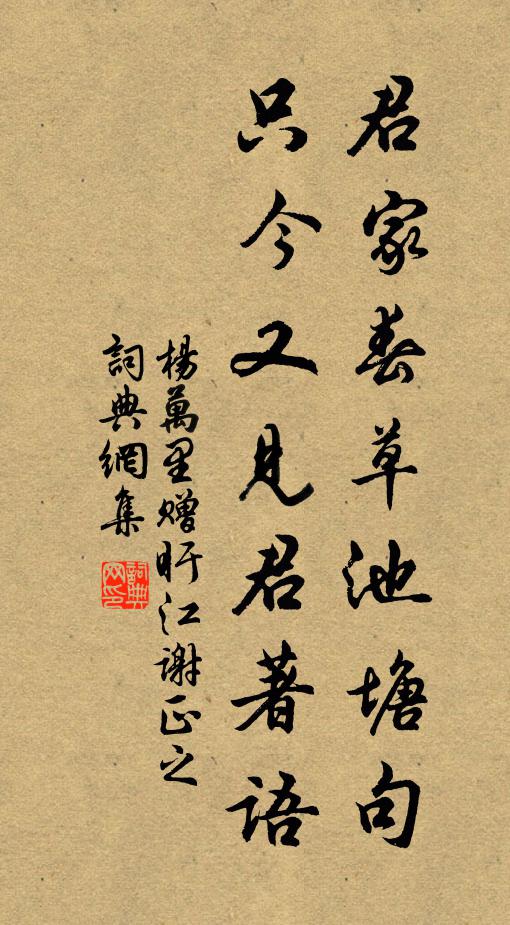 君家春草池塘句
只今又见君著语
楊萬里赠盱江谢正之
詞典網集
詞典网印